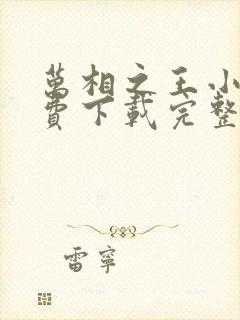 萬相之王小
費下載完整
雷寧